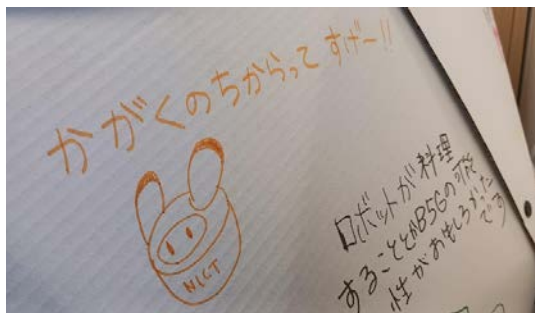 かがくのちからって すげー!!
NICT
ロボットが料理
することとかB5Gの可能
性がおもしろかった
です